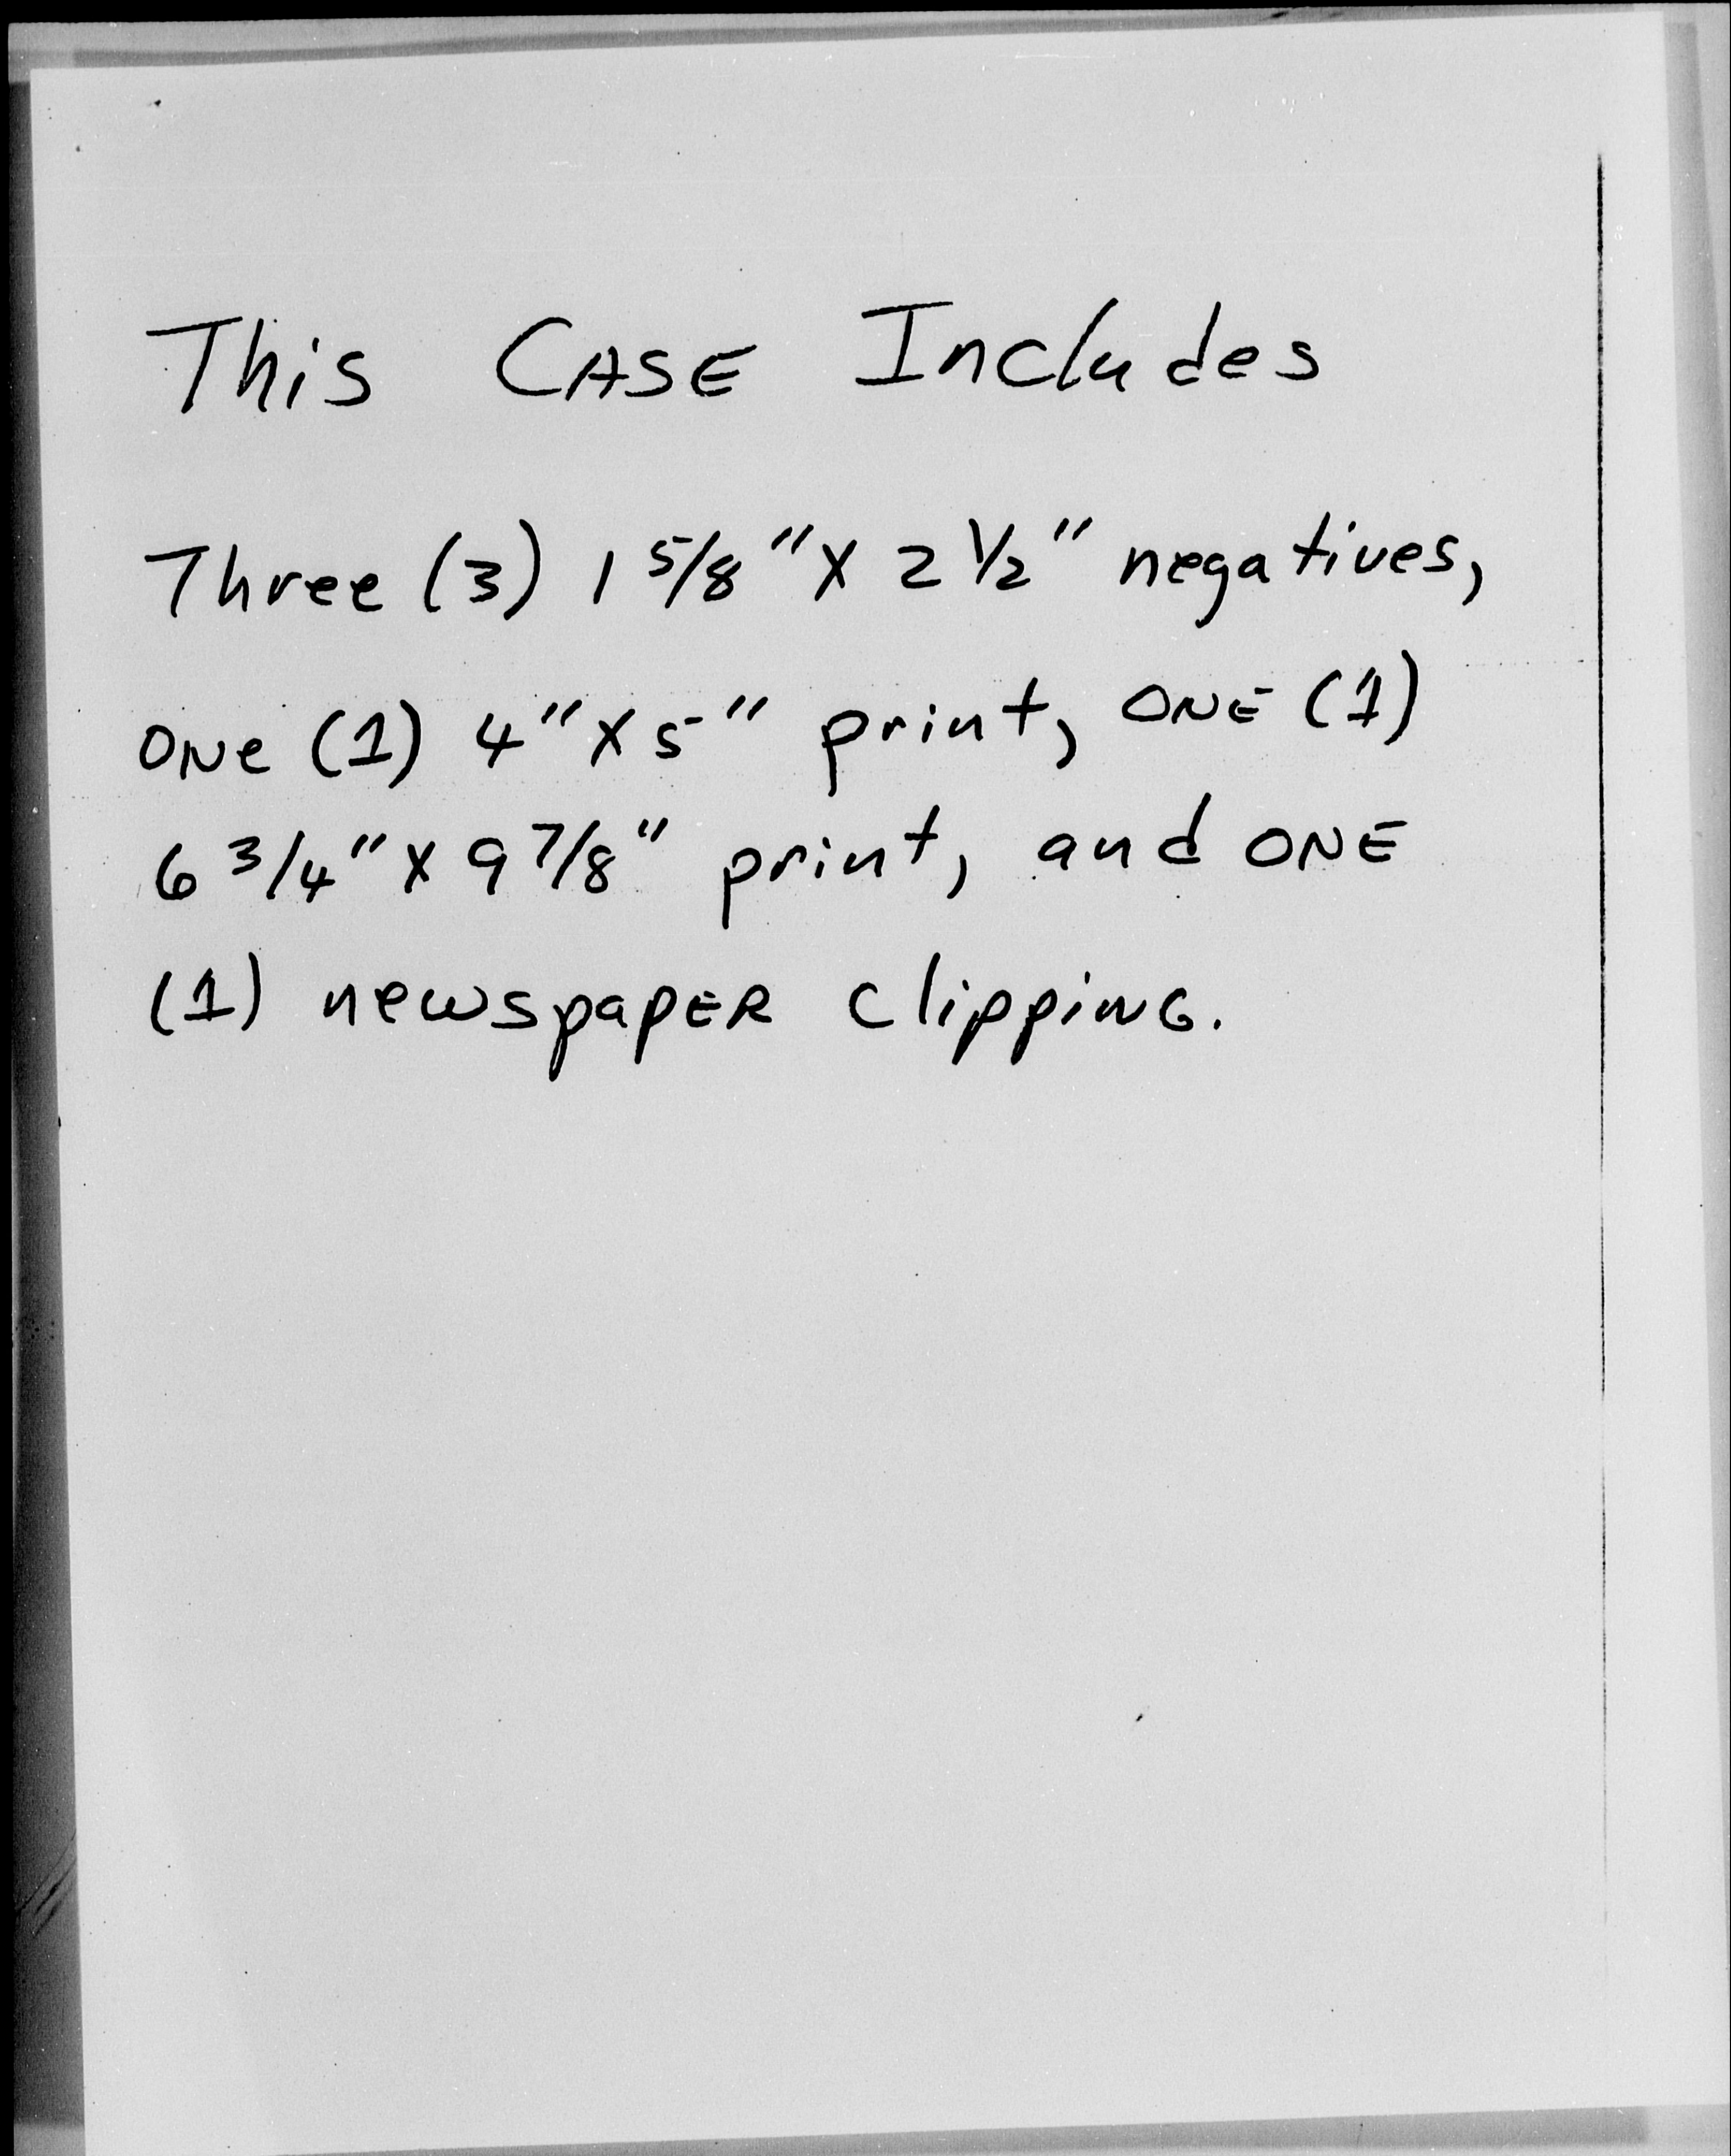 This CASE Includes
Three (3) 1 5/8" X 2 1/2" negatives,
ONe (1) 4" X 5" print, ONE (1)
6 3/4" X 9 7/8" print, and ONE
(1) newspapER clippiNG.